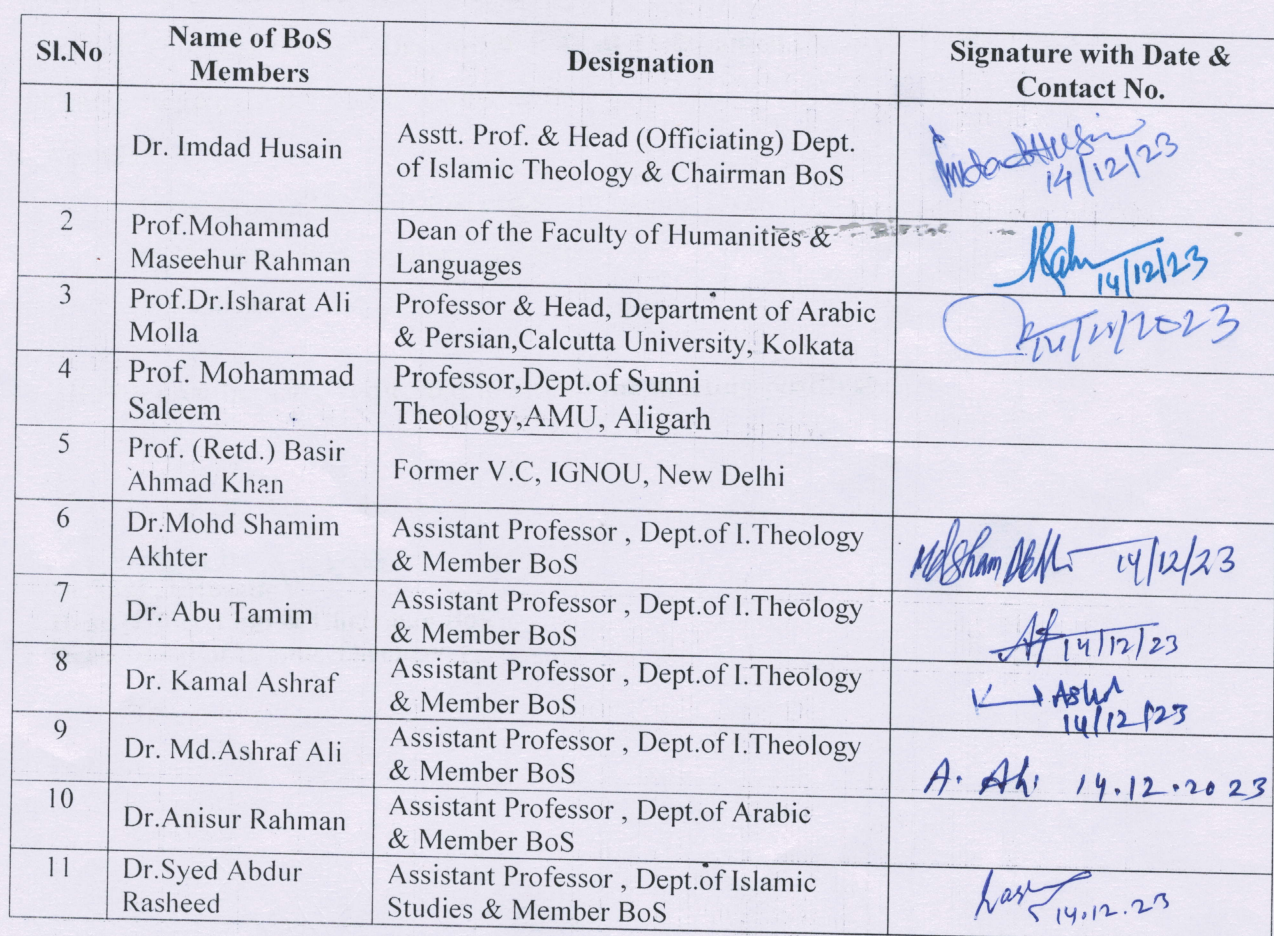 Sl.No
Name of BoS
Members
Designation
Signature with Date &
Contact No.
1
Dr. Imdad Husain
Asstt. Prof. & Head (Officiating) Dept.
of Islamic Theology & Chairman BoS
Imdad Husain
14/12/23
2
Prof.Mohammad
Maseehur Rahman
Dean of the Faculty of Humanities &
Languages
14/12/23
3
Prof.Dr.Isharat Ali
Molla
Professor & Head, Department of Arabic
& Persian,Calcutta University, Kolkata
4
Prof. Mohammad
Saleem
Professor,Dept.of Sunni
Theology,AMU, Aligarh
5
Prof. (Retd.) Basir
Ahmad Khan
Former V.C, IGNOU, New Delhi
6
Dr.Mohd Shamim
Akhter
Assistant Professor , Dept.of I.Theology
& Member BoS
14/12/23
7
Dr. Abu Tamim
Assistant Professor , Dept.of I.Theology
& Member BoS
14/12/23
8
Dr. Kamal Ashraf
Assistant Professor , Dept.of I.Theology
& Member BoS
14/12/23
9
Dr. Md.Ashraf Ali
Assistant Professor , Dept.of I.Theology
& Member BoS
A. Ali 14.12.2023
10
Dr.Anisur Rahman
Assistant Professor , Dept.of Arabic
& Member BoS
11
Dr.Syed Abdur
Rasheed
Assistant Professor , Dept.of Islamic
Studies & Member BoS
14.12.23